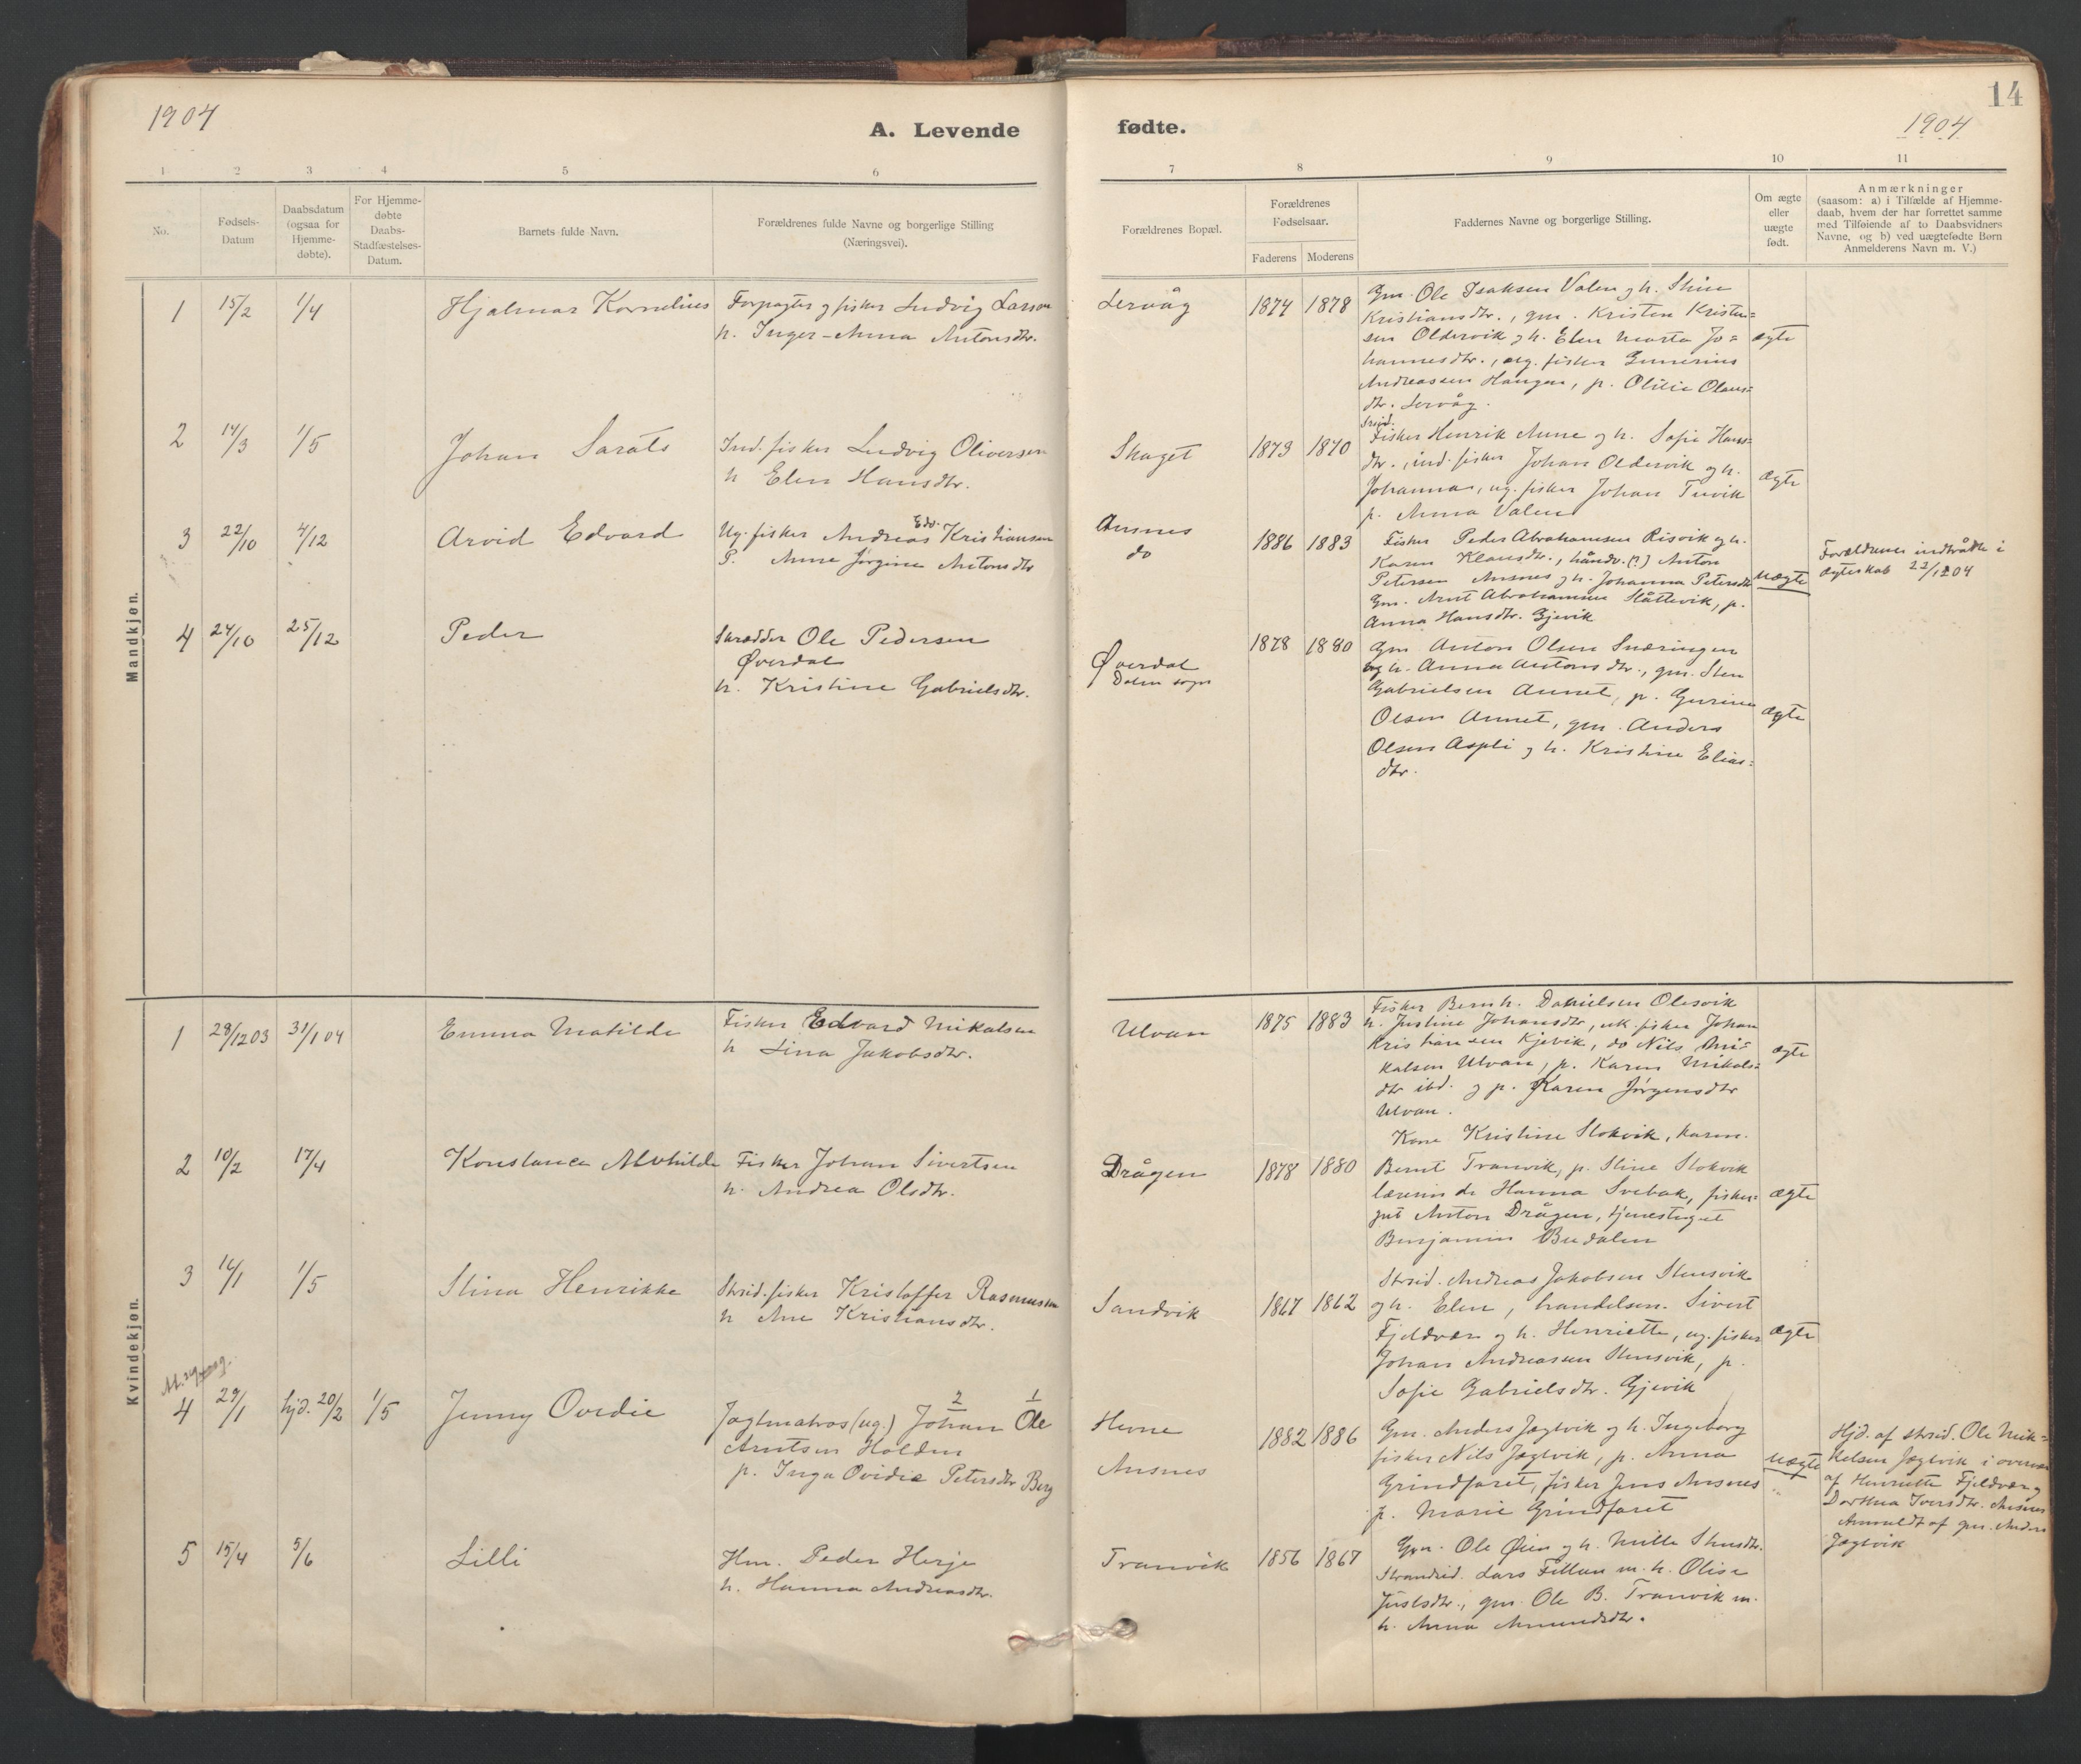 1904
A. Levende
1 2 3 4 5 6
No.
Fødsels-
Datum
Daabsdatum
(ogsaa for
Hjemme-
døbte).
For Hjemme-
døbte
Daabs-
Stadfæstelses-
Datum.
Barnets fulde Navn.
Forældrenes fulde Navne og borgerlige Stilling
(Næringsvei).
Mandkjøn.
1 15/2 1/4 Hjalmar Kornelius Forpagter og fisker Ludvig Larsen
h. Inger-Anna Antonsdtr.
2 14/3 1/5 Johan Sarats Ind. fisker Ludvig Oliversen
h Elen Hansdtr.
3 22/10 4/12 Arvid Edvard Ug. fisker Andreas Edv. Kristiansen
P. Anne Jørgine Antonsdtr
4 24/10 25/12 Peder Skrædder Ole Pedersen
Øverdal
h. Kristine Gabrielsdtr.
Kvindekjøn.
1 29/12 03 31/1 04 Emma Matilde Fisker Edvard Mikalsen
h Lina Jakobsdtr.
2 10/2 17/4 Konstance Alvhilde Fisker Johan Sivertsen
h. Andrea Olsdtr.
3 16/1 1/5 Stina Henrikke Strid. fisker Kristoffer Rasmussen
h Ane Kristiansdtr.
4 29/1 hjd. 20/2 1/5 Jenny Ovidie Jagtmatros (ug.) Johan 2 Ole 1
Arntsen Holden
p. Inga Ovidie Petersdtr Berg
5 15/4 5/6 Lilli Hm. Peder Herje
h. Hanna Andreasdtr.
14
fødte.
1904
7 8 9 10 11
Forældrenes Bopæl.
Forældrenes
Fødselsaar.
Faderens Moderens
Faddernes Navne og borgerlige Stilling.
Om ægte
eller
uægte
født.
Anmærkninger
(saasom: a) i Tilfælde af Hjemme-
daab, hvem der har forrettet samme
med Tilføiende af to Daabsvidners
Navne, og b) ved uægtefødte Børn
Anmelderens Navn m. V.)
Lervåg 1874 1878 Gm. Ole Isaksen Valen og h. Stine
Kristiansdtr., gm. Kristen Kristen=
sen Oldervik og h. Elen Marta Jo=
hannesdtr., ug. fisker Gunerius
Andreassen Haugen, p. Olilie Olaus=
dtr. Lervåg.
ægte
Skaget 1873 1870
Strid.
Fisker Henrik Aune og h. Sofie Hans=
dtr., ind. fisker Johan Oldervik og h.
Johanna, ug. fisker Johan Tevik
p. Anna Valen
ægte
Ansnes
do
1886 1883 Fisker Peder Abrahamsen Risvik og h.
Karen Klausdtr., håndv. (?) Anton
Petersen Ansnes og h. Johanna Petersdtr
Gm. Arnt Abrahamsen Slåttevik, p.
Anna Hansdtr. Gjevik
uægte
Forældrene indtrådte i
ægteskab 22/12 04
Øverdal
Dalen sogn
1878 1880 Gm Anton Olsen Snæringen
og h. Anna Antonsdtr., gm. Sten
Gabrielsen Aunet, p. Gurine
Olsen Aunet, gm. Anders
Olsen Aspli og h. Kristine Elias=
dtr.
ægte
Ulvan 1875 1883 Fisker Bernh. Danielsen Olesvik
h. Justine Johansdtr, uk. fisker Johan
Kristiansen Kjevik, do Nils Mi=
kalsen Ulvan, p. Karen Mikals=
dtr ibd. og p. Karen Jørgensdtr
Ulvan.
ægte
Drågen 1878 1880
Kone Kristine Stokvik, karen.
Bernt Tranvik, p. Stine Stokvik
lærerinde Hanna Svebak, fisker=
gut Anton Drågen, tjenestegut
Benjamin Budalen
ægte
Sandvik 1867 1862
Strid. Andreas Jakobsen Stensvik
og h. Elen, handelsm. Sivert
Fjeldvær og h. Henriette, ug. fisker
Johan Andreassen Stensvik, p.
Sofie Gabrielsdtr. Gjevik
ægte
Hevne
Ansnes
1882 1886 Gm. Anders Jægtvik og h. Ingeborg
fisker Nils Jægtvik, p. Anna
Grindfaret, fisker Jens Ansnes
p. Marie Grindfaret
uægte
Hjd. af strid. Ole Mik=
kelsen Jægtvik i overvær
af Henriette Fjeldvær og
Dorthea Iversdtr. Ansnes
Anmeldt af gm. Anders
Jægtvik
Tranvik 1856 1867 Gm. Ole Øien og h. Mille Stensdtr.
Strandsid. Lars Fillan m. h. Olise
Justsdtr., gm. Ole B. Tranvik m.
h. Anna Amundsdtr.